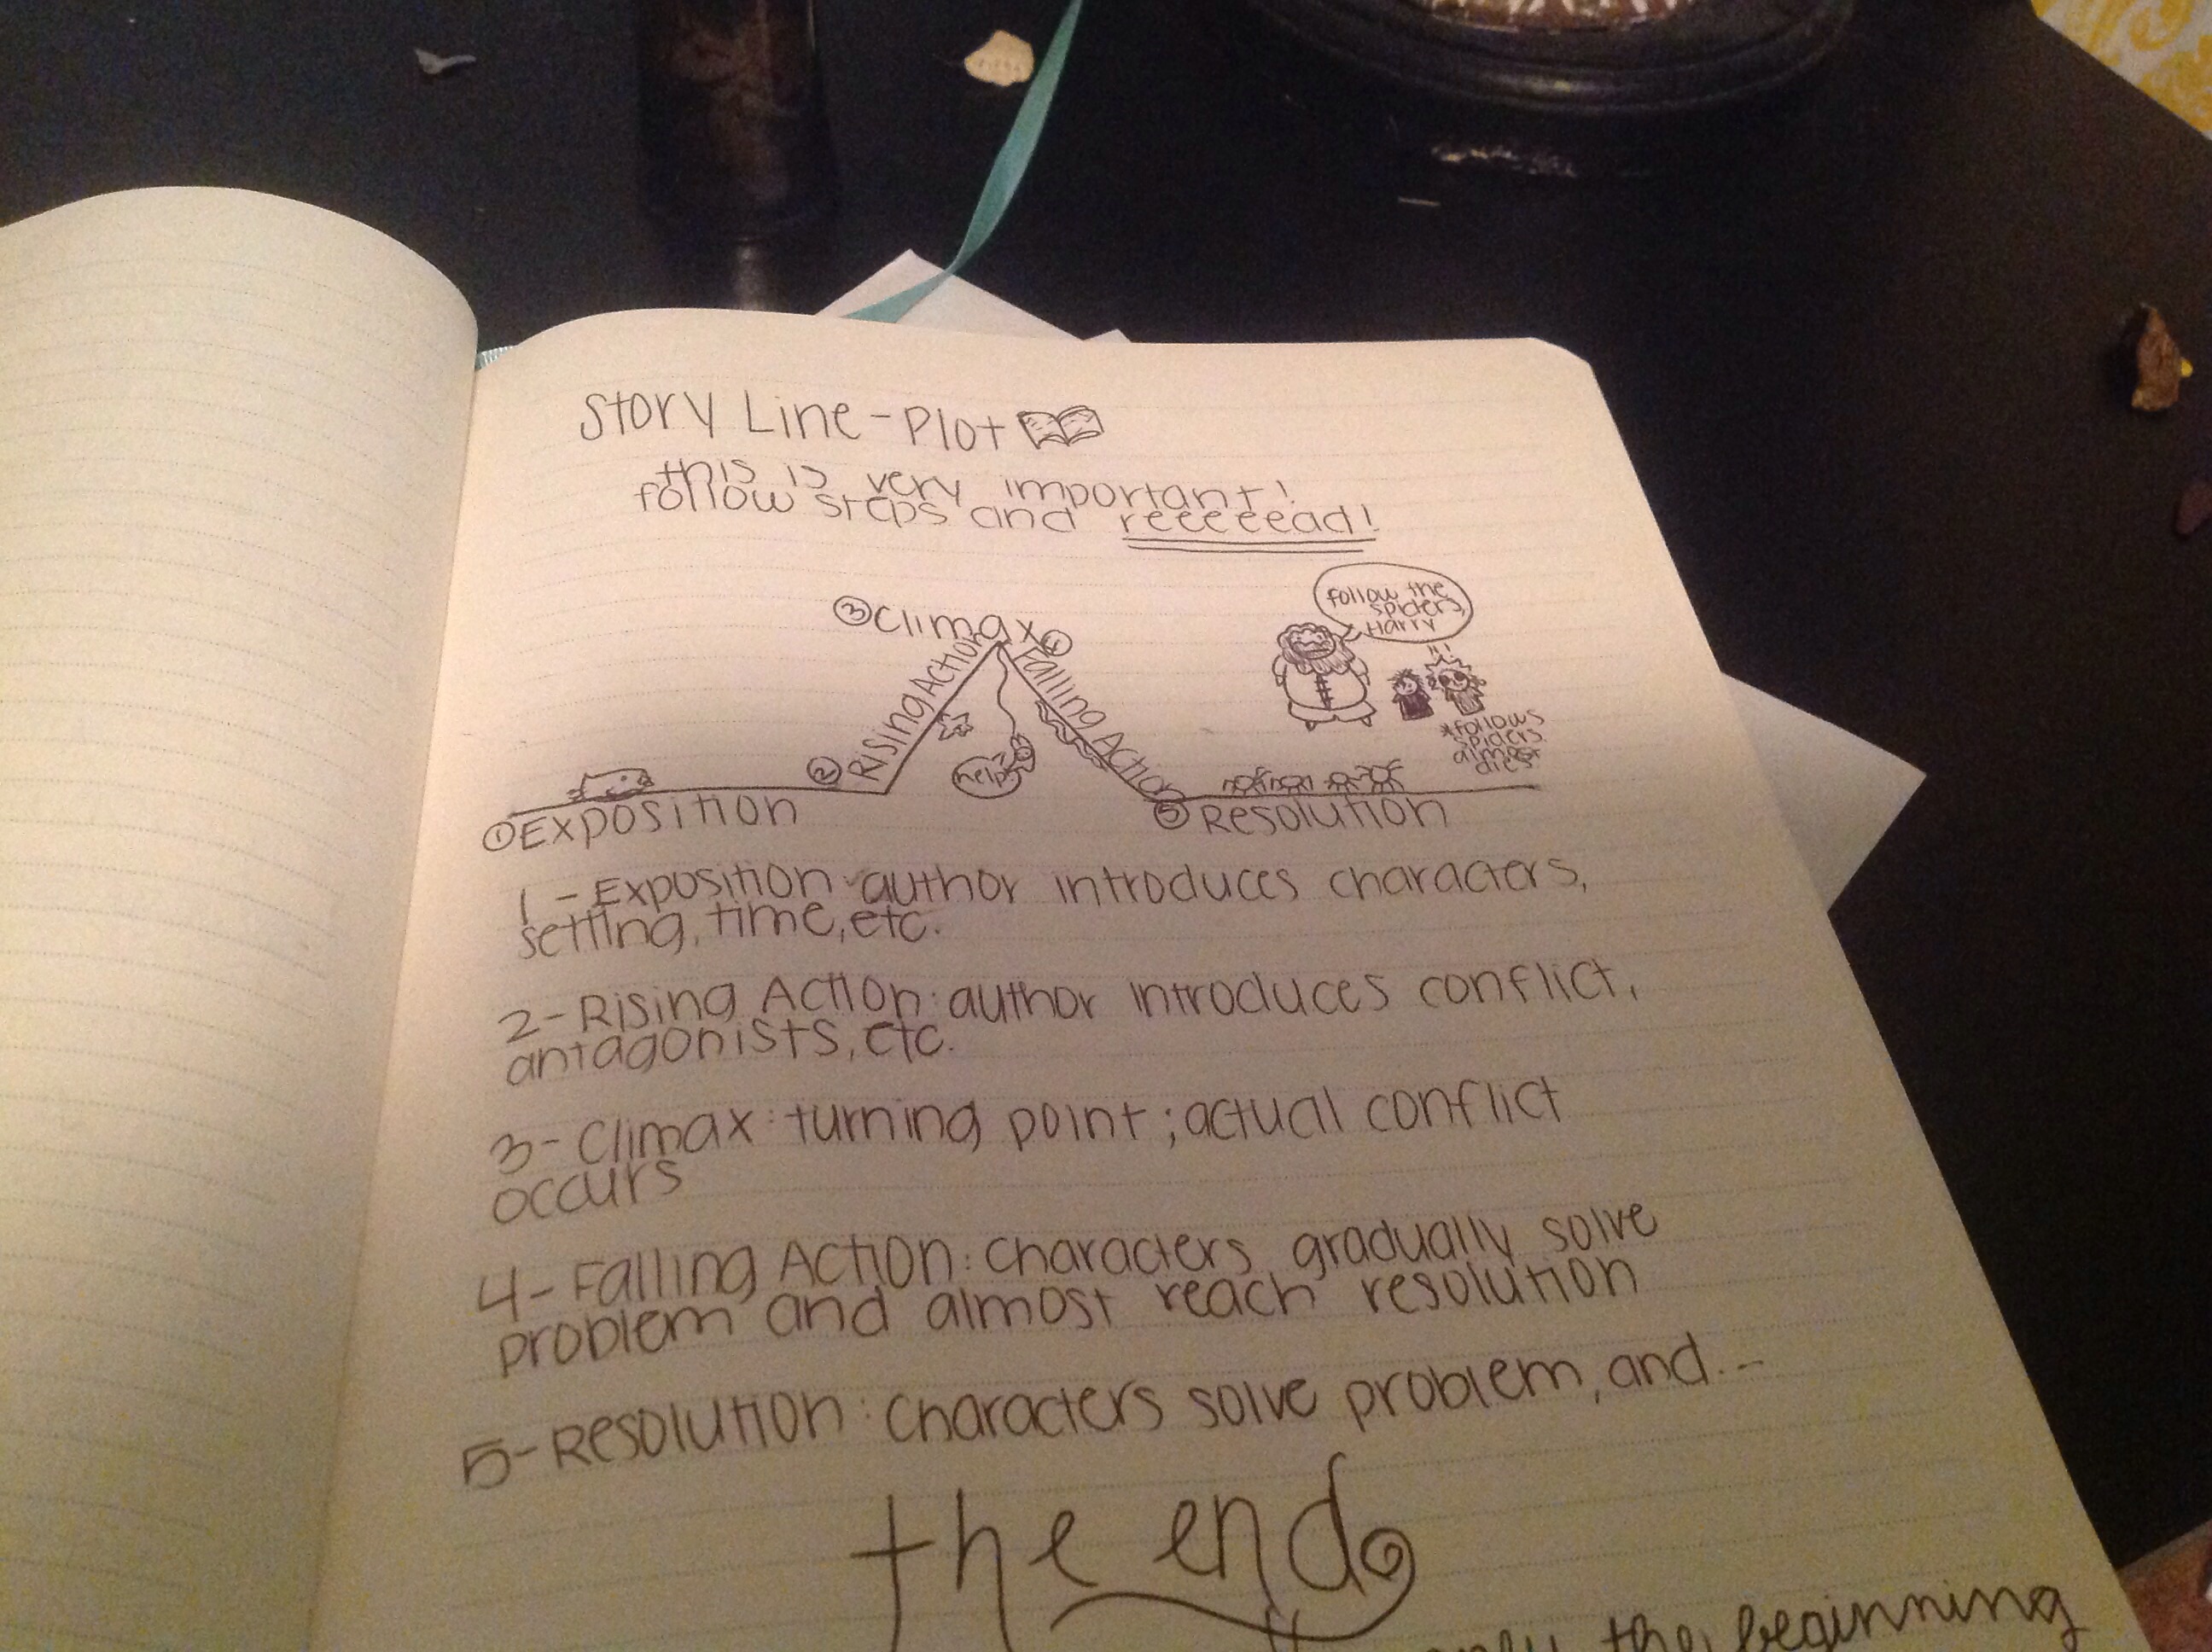 Story Line - Plot
this is very important!
follow steps and reeeeead!
follow the
spiders,
Harry
③ Climax
④ Falling Action
② Rising Action
help
*follows
spiders
almost
dies*
① Exposition
⑤ Resolution
1 - Exposition: author introduces characters,
setting, time, etc.
2 - Rising Action: author introduces conflict,
antagonists, etc.
3 - Climax: turning point; actual conflict
occurs
4 - Falling Action: characters gradually solve
problem and almost reach resolution
5 - Resolution: characters solve problem, and...
the end
only the beginning